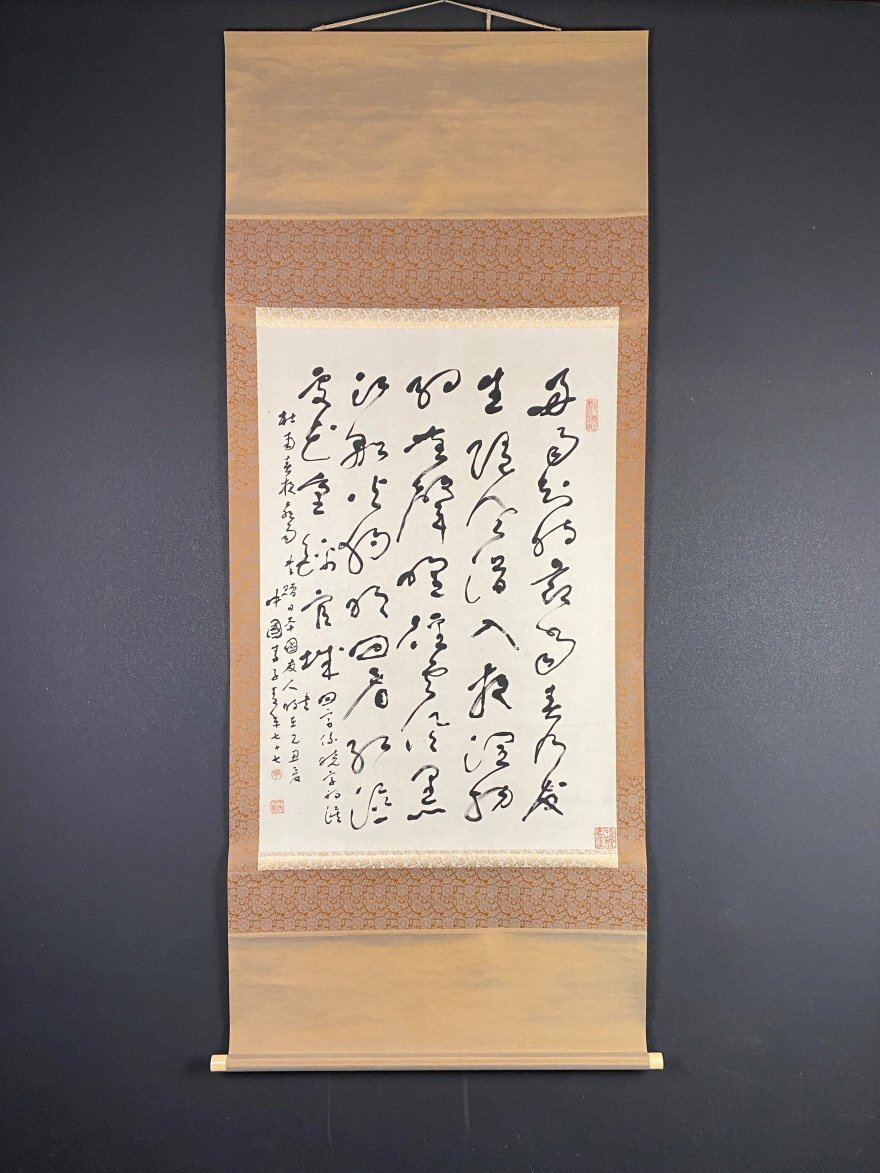 好雨知時節當春乃發
生隨風潛入夜潤物
細無聲野徑雲俱黑
江船火獨明回看紅濕
處花重錦官城
回字係曉字誤
杜甫春夜喜雨書贈日本國友人時在乙丑夏
中國李子青年七十七